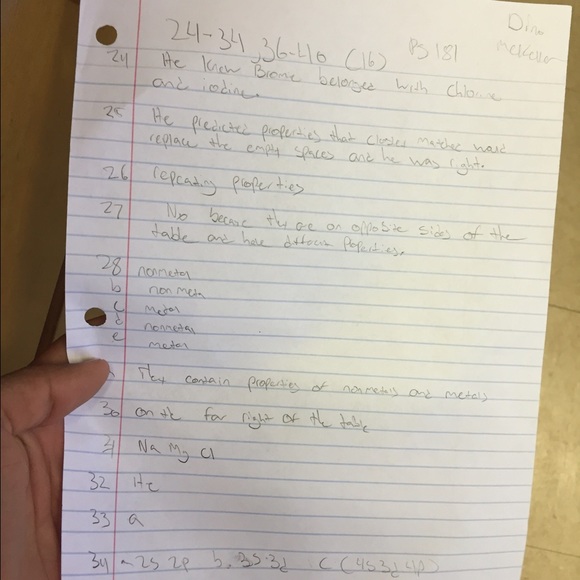 Dina
24-34, 36-40 (16) Pg 181
McKellar
24 He knew Brome belonged with Chlorine
and iodine.
25 He predicted properties that closley matched would
replace the empty spaces and he was right.
26 repeating properties
27 No because they are on opposite sides of the
table and have
28 nonmetal
b non meta
c metal
d nonmetal
e metal
They contain properties of nonmetals and metals
30 on the far right of the table
Na Mg Cl
32 He
33 a
34 a 2s 2p b. 3s 3d c (4s 3d 4p)